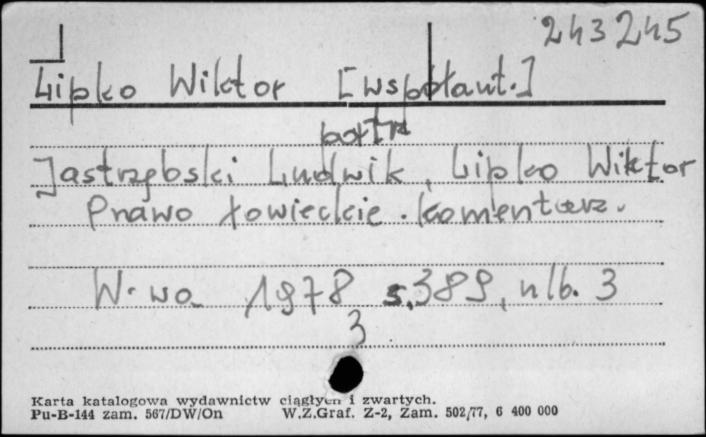 243245
Lipko Wiktor [współaut.]
Jastrzębski Ludwik, Lipko Wiktor
Prawo łowieckie. Komentarz.
W-wa 1978 s. 389, nlb. 3
3
Karta katalogowa wydawnictw ciągłych i zwartych.
Pu-B-144 zam. 567/DW/On W.Z.Graf. Z-2, Zam. 502/77, 6 400 000